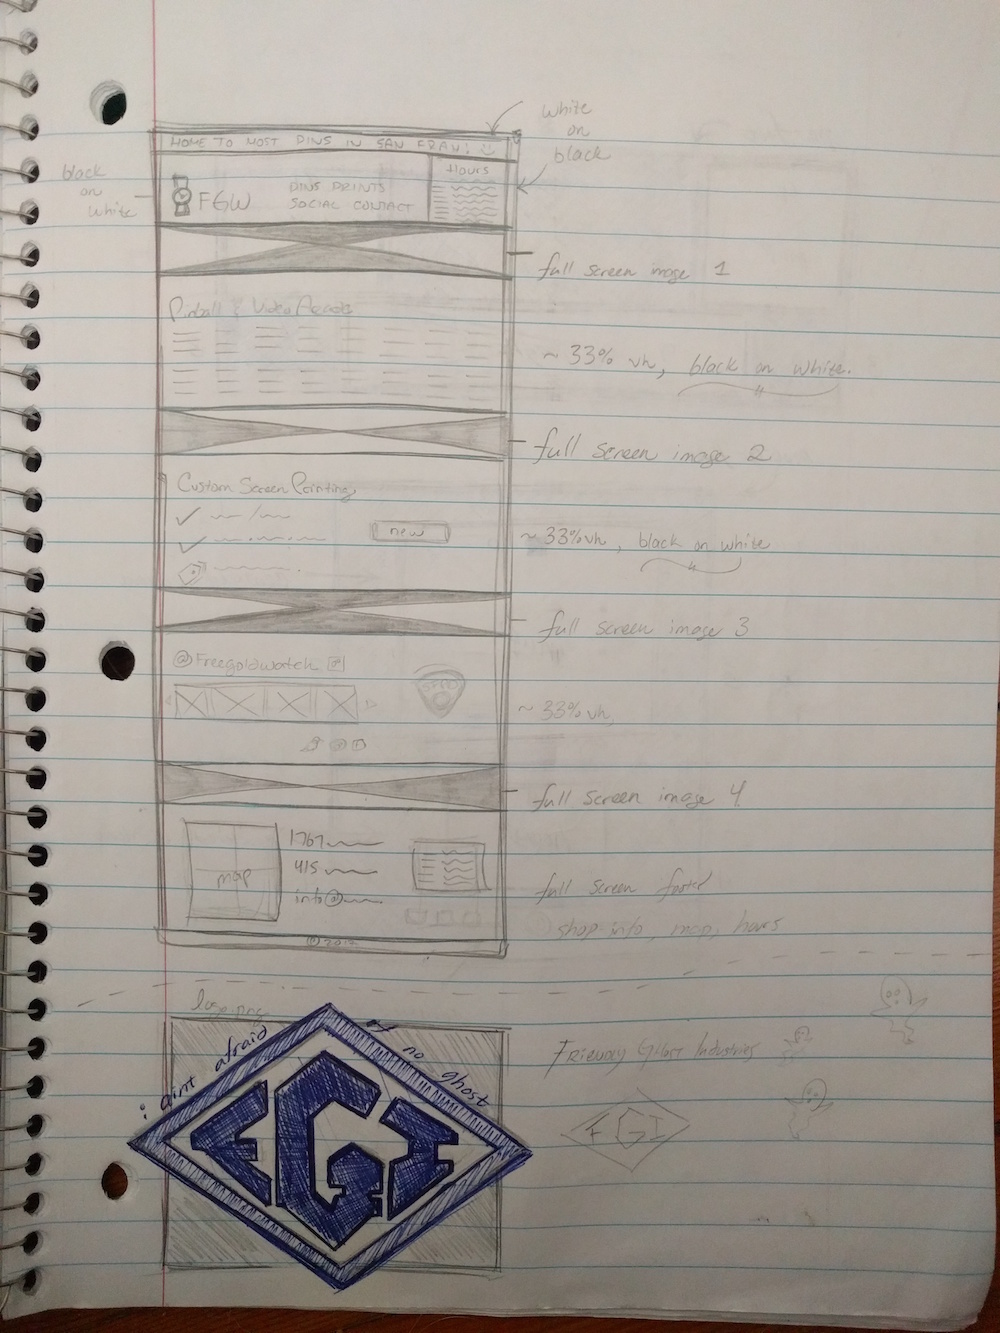 white
on
black
HOME TO MOST PINS IN SAN FRAN!
black
on
white
Hours
FGW
PINS PRINTS
SOCIAL CONTACT
full screen image 1
Pinball & Video Arcade
~ 33% vh, black on white.
full screen image 2
Custom Screen Printing
new
~ 33% vh, black on white
full screen image 3
@Freegoldwatch
~ 33% vh,
full screen image 4
1767
415
map
info@
full screen footer
shop info, map, hours
logo.png
i aint afraid of no ghost
FGI
Friendly Ghost Industries
FGI